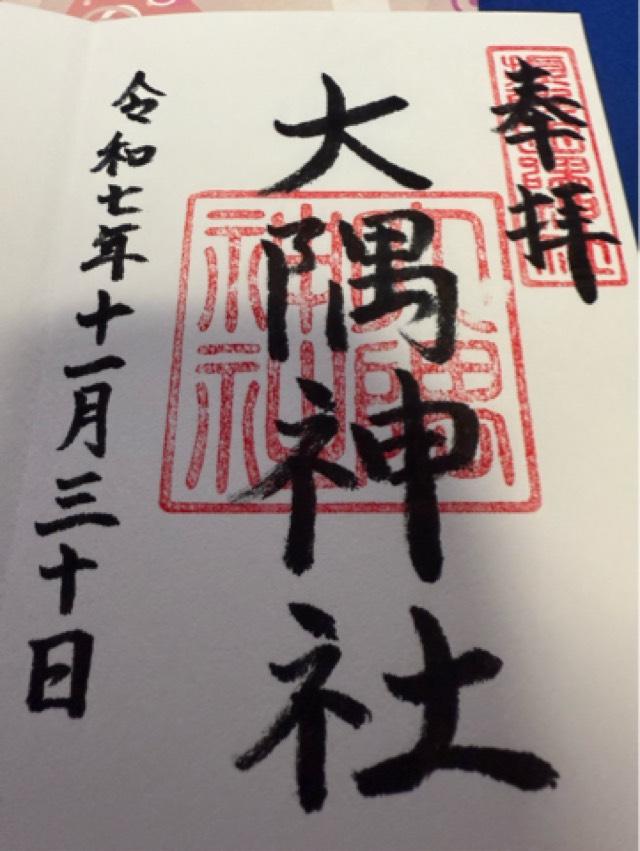 奉拝
大隅神社
令和七年十一月三十日
大隅神社